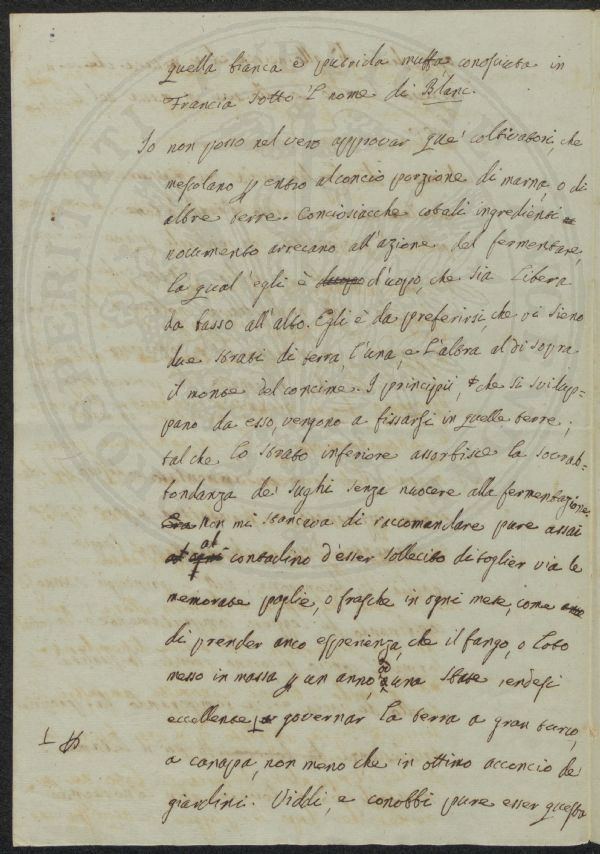 quella bianca e putrida muffa conosciuta in
Francia sotto 'l nome di Blanc.
Io non posso nel vero approvar que' coltivatori, che
mescolano p entro al concio porzione di marna, o di
altre terre. Conciosiacche cotali ingredienti
nocumento arrecano all'azione del fermentare,
la qual'egli è d'uopo, che sia libera
da basso all'alto. Egli è da preferirsi, che vi sieno
due strati di terra, l'una, e l'altra al di sopra
il monte del concime. I principii, che si svilup=
pano da esso, vengono a fissarsi in quelle terre;
tal che lo strato inferiore assorbisce la sovrab=
bondanza de' sughi senza nuocere alla fermentazione.
non mi stancava di raccomandare pure assai
al contadino d'esser sollecito di toglier via le
memorate paglie, o frasche in ogni mese, come
di prender anco esperienza, che il fango, o loto
messo in massa p un anno, una rendesi
eccellente governar la terra a gran turco,
a canapa, non meno che in ottimo acconcio de'
giardini. Viddi, e conobbi pure esser questa